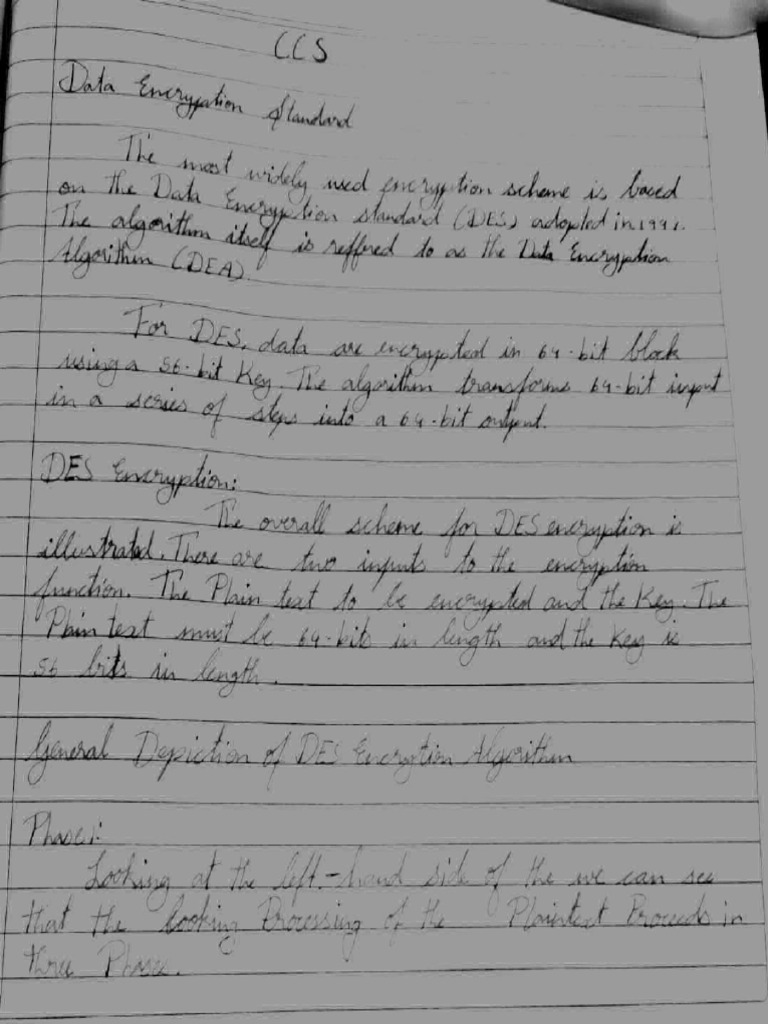 CCS
Data Encryption Standard
The most widely used encryption scheme is based
on the Data Encryption standard (DES) adopted in
The algorithm itself is reffered to as the Data Encryption
Algorithm (DEA).
For DES, data are encrypted in 64-bit block
using a 56-bit Key. The algorithm transforms 64-bit input
in a series of steps into a 64-bit output.
DES Encryption:
The overall scheme for DES encryption is
illustrated. There are two inputs to the encryption
function. The Plain text to be encrypted and the Key. The
Plain text must be 64-bits in length and the Key is
56 bits in length.
General Depiction of DES Encrytion Algorithm
Phase 1:
Looking at the left-hand side of the we can see
that the looking Processing of the Plaintext Proceeds in
three Phases.